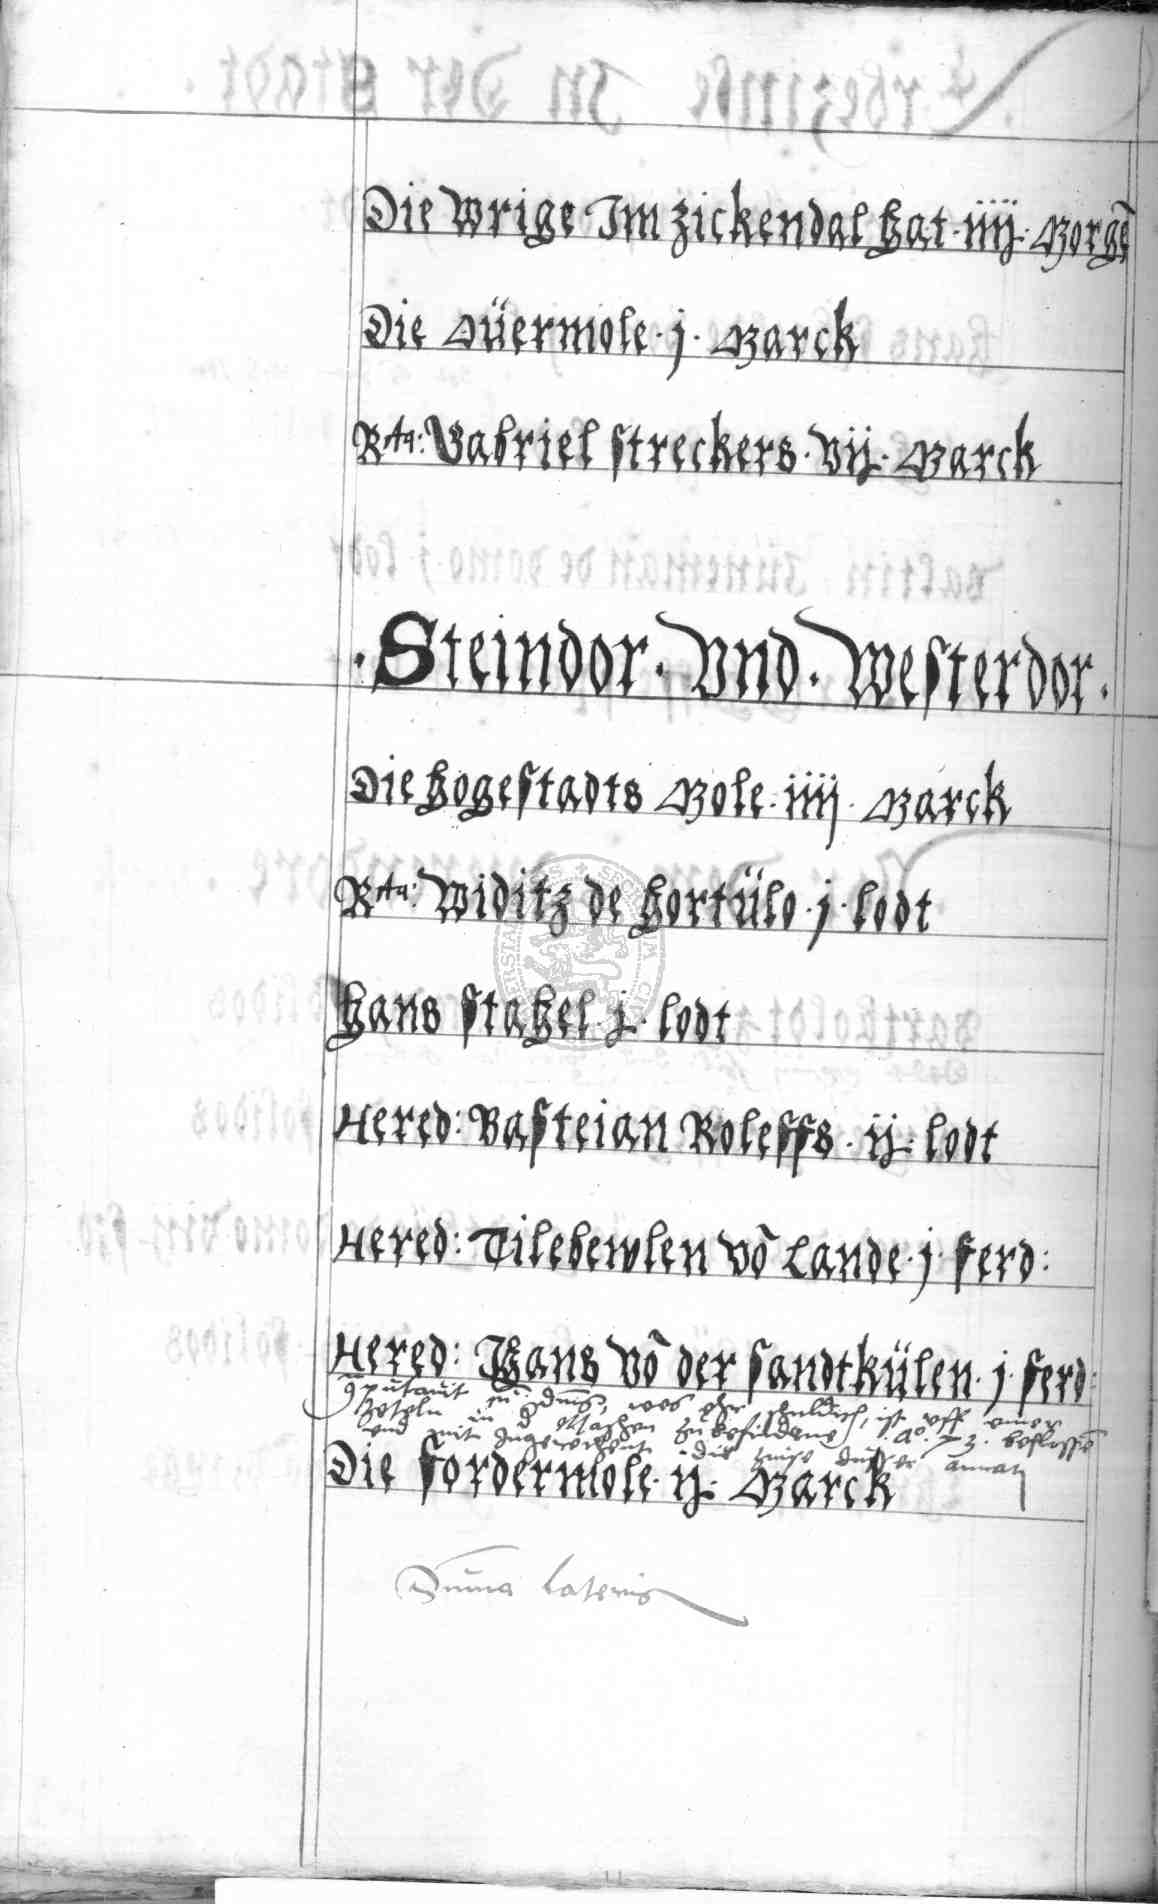 Die Wrige Im Zickendal hat iiij Morgē
Die Aüermole · j · Marck
Rta: Gabriel streckers · vij · Marck
· Steindor · Vnd · Westerdor ·
Die hogestadts Mole · iiij · Marck
Rta: Widitz de hortülo · j · lodt
Hans stahel · j · lodt
Hered: Basteian Roleffs · ij · lodt
Hered: Tilebewlen vō Lande · j · ferd:
Hered: Hans vō der sandtkülen · j · ferd:
ist vff einer
Zeteln in
vnd mit
Die fordermole · ij · Marck
Suma lateris